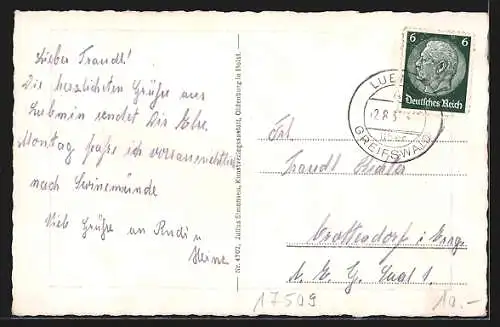 Lieber Traudl!
Die herzlichsten Grüße aus
Lubmin sendet Dir
Montag fahre ich voraussichtlich
nach Swinemünde
Viele Grüße an Rudi u
Heine
Nr. 4102, Julius Simonsen, Kunstverlagsanstalt, Oldenburg in Holst.
6 6
Deutsches Reich
LUB
2.8.3
GREIFSWALD
Frl
Traudl
Crottendorf i. Erzg.
17509
10.-